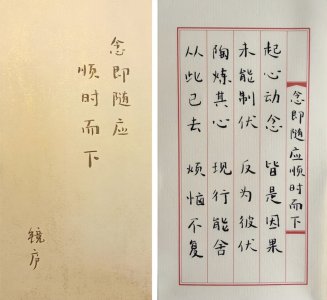 念即随应
顺时而下
镜序
念即随应顺时而下
起心动念 皆是因果
未能制伏 反为彼伏
陶炼其心 现行能舍
从此已去 烦恼不复